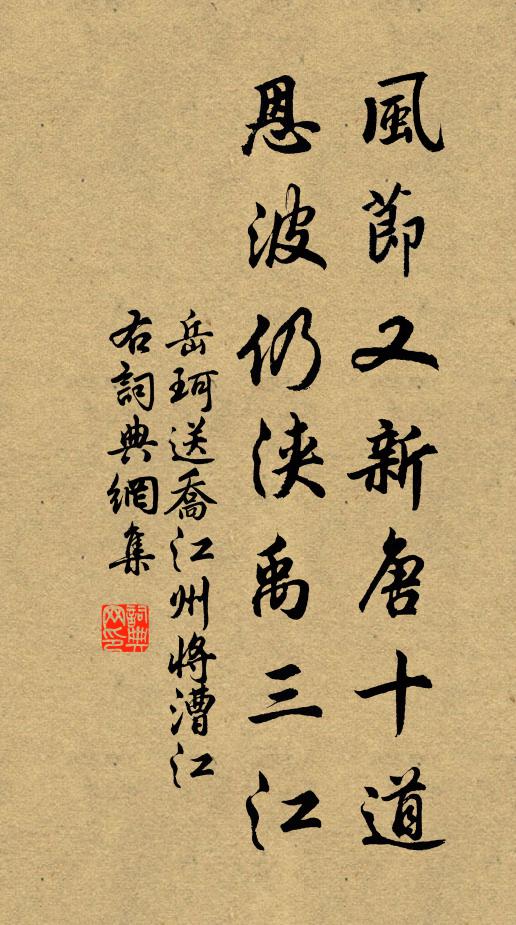 風節又新唐十道
恩波仍浹禹三江
岳珂送喬江州將漕江
右詞典網集
詞典網印